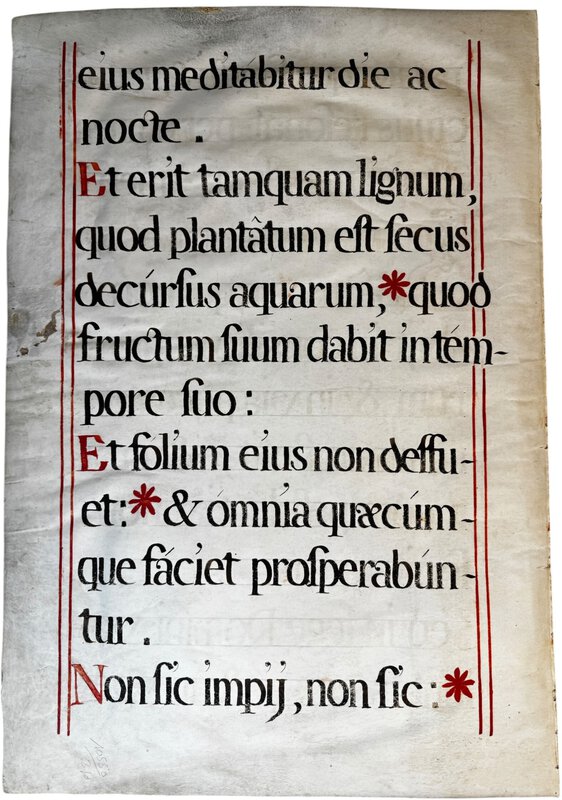 eius meditábitur die ac
nocte.
Et erit tamquam lignum,
quod plantâtum eſt ſecus
decúrſus aquarum,*quod
fructum ſuum dabit in tém-
pore ſuo:
Et folium eius non deffu-
et:*& ómnia quæcúm-
que fáciet proſperabún-
tur.
Non ſic impij, non ſic:*